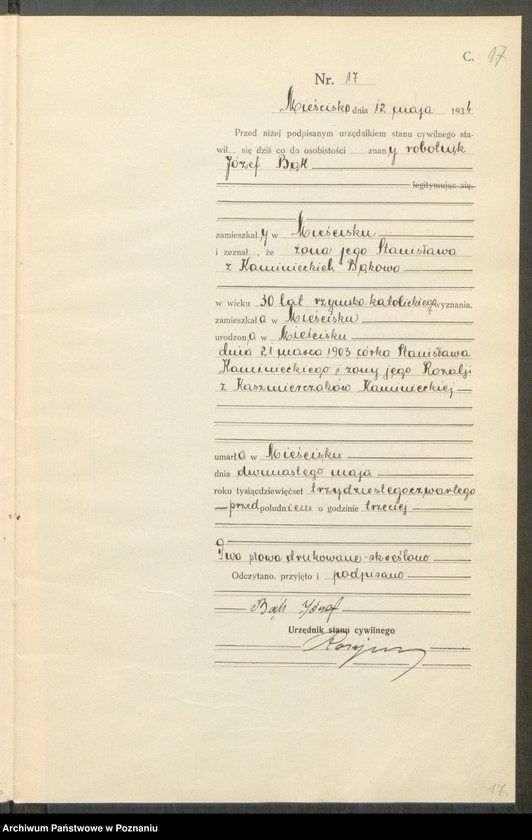 C. 17
Nr. 17
Mieścisko dnia 12 maja 1934
Przed niżej podpisanym urzędnikiem stanu cywilnego sta-
wił się dziś co do osobistości znany robotnik
Józef Bąk
legitymując się,
zamieszkały w Mieścisku
i zeznał, że żona jego Stanisława
z Kaminieckich Bąkowa
w wieku 30 lat rzymsko-katolickiego wyznania,
zamieszkała w Mieścisku
urodzona w Mieścisku
dnia 21 marca 1903 córka Stanisława
Kaminieckiego i żony jego Rozalji
z Kaszmierczaków Kaminieckiej
umarła w Mieścisku
dnia dwunastego maja
roku tysiącdziewięćset trzydziestegoczwartego
przed południem o godzinie trzeciej
Dwa słowa drukowane skreślono
Odczytano, przyjęto i podpisano
Bąk Józef
Urzędnik stanu cywilnego
17.
Archiwum Państwowe w Poznaniu